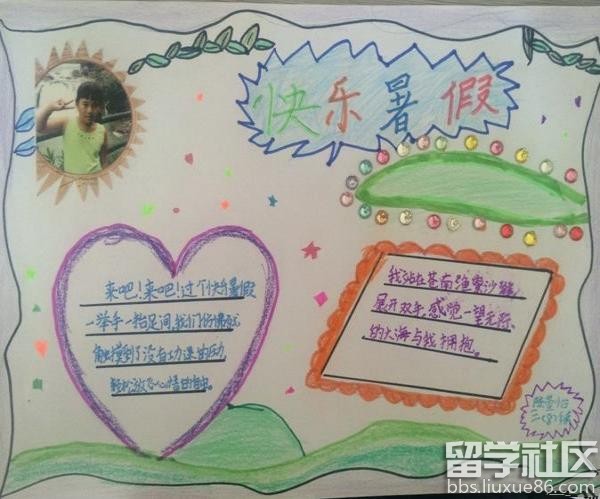 快乐暑假
来吧！来吧！过个快乐暑假
一举手一抬足间,我们仿佛
触摸到了没有功课的
轻松放飞心情自由。
我站在苍南渔寮沙滩，
展开双手感觉一望无际
的大海与我拥抱。
留学社区
bbs.liuxue86.com